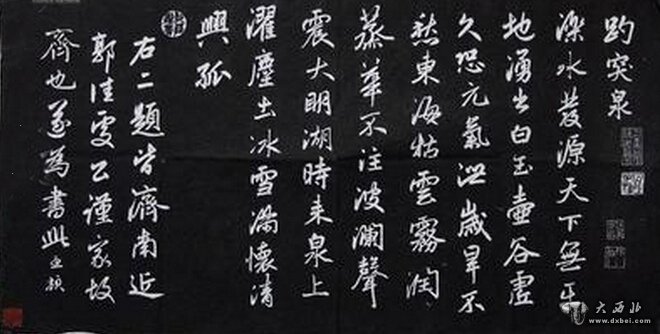 趵突泉
濼水發源天下無平
地湧出白玉壺谷虛
久恐元氣洩歲旱不
愁東海枯雲霧潤
蒸華不注波瀾聲
震大明湖時来泉上
濯塵土冰雪滿懷清
興孤
右二題皆濟南近
郭佳處公謹家故
齊也遂為書此孟頫
大西北
www.dxbei.com